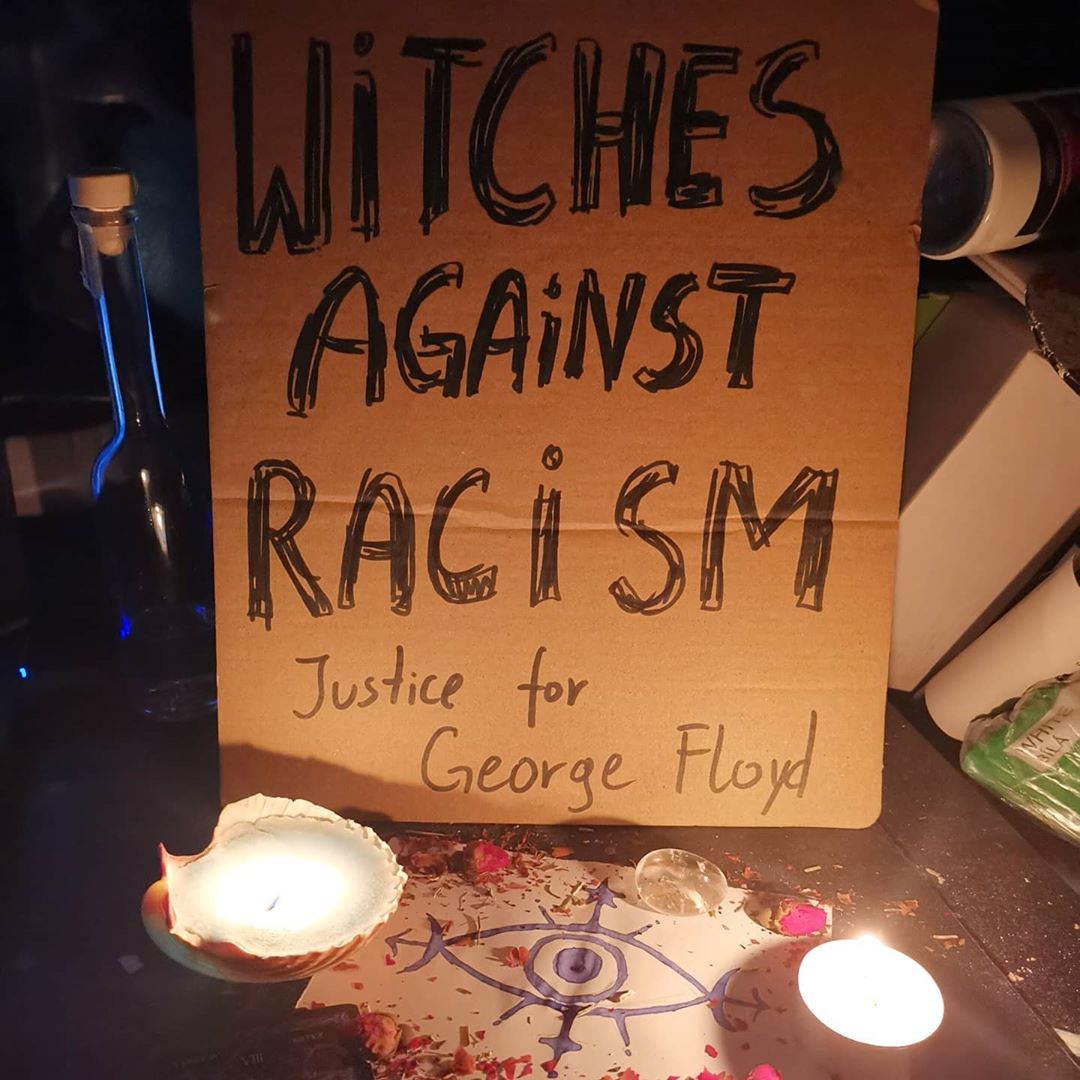 WiTCHES
AGAiNST
RACiSM
Justice for
George Floyd
WHITE